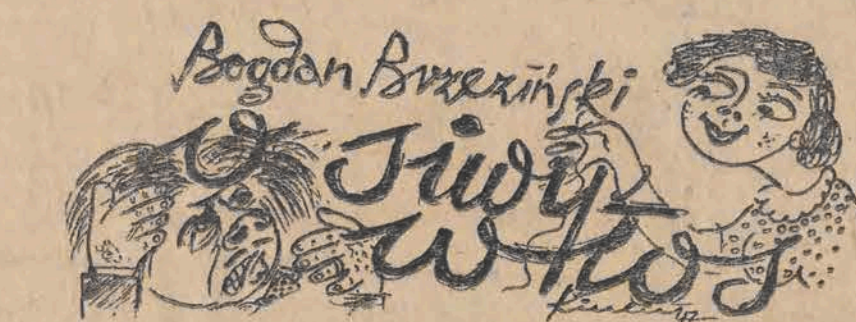 Bogdan Brzeziński
Siwy
włos